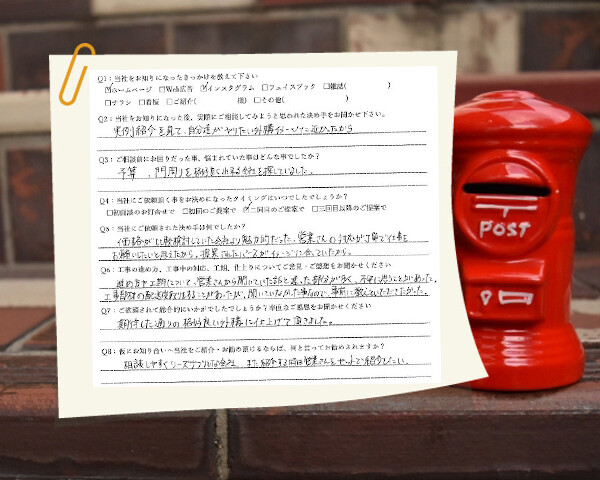 Q1：当社をお知りになったきっかけを教えて下さい
☑ホームページ □Web広告 ☑インスタグラム □フェイスブック □雑誌( )
□チラシ □看板 □ご紹介( 様) □その他( )
Q2：当社をお知りになった後、実際にご相談してみようと思われた決め手をお聞かせ下さい。
実例紹介を見て、自分達がやりたい外構イメージに近かったから
Q3：ご相談前にお困りだった事、悩まれていた事はどんな事でしたか？
予算、門周りを格好良く出来る会社を探していました。
Q4：当社にご依頼頂く事をお決めになったタイミングはいつでしたでしょうか？
□初回面談のお打合せで □初回のご提案で ☑二回目のご提案で □三回目以降のご提案で
Q5：当社にご依頼された決め手は何でしたか？
価格が比較検討していた会社より魅力的だった。営業さんの対応が丁寧で仕事を
お願いしたいと思えたから。提案されたパースがイメージに合っていたから。
Q6：工事の進め方、工事中の対応、工期、仕上りについてご意見・ご感想をお聞かせください
進め方や工期について、営業さんから聞いていた話と違った部分が多く、不安に思うことがあった。
工事
Q7：ご依頼されて総合的にいかがでしたでしょうか？率直なご感想をお聞かせください
期待した通りの格好良い外構に仕上げて頂きました。
Q8：仮にお知り合いへ当社をご紹介・お勧め頂けるならば、何と言ってお勧めされますか？
相談しやすくリーズナブルな会社。また紹介する時は営業さんをセットで紹介したい。
POST